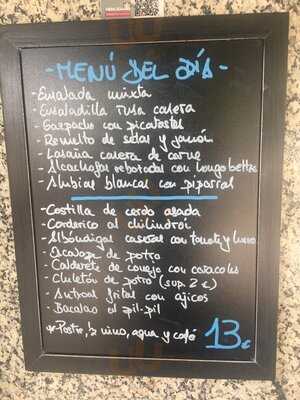 - MENÚ DEL DÍA -
- Ensalada mixta
- Ensaladilla rusa casera
- Gazpacho con picatostes
- Revuelto de setas y jamón
- Lasaña casera de carne
- Alcachofas rebozadas con
- Alubias blancas con piparras
- Costilla de cerdo asada
- Corderico al chilindrón
- Albóndigas caseras con tomate y
- Escalope de potro
- Calderete de conejo con caracoles
- Chuletón de potro (sup. 2 €)
- fritas con ajicos
- Bacalao al pil-pil
Postre, ½ vino, agua y café 13€